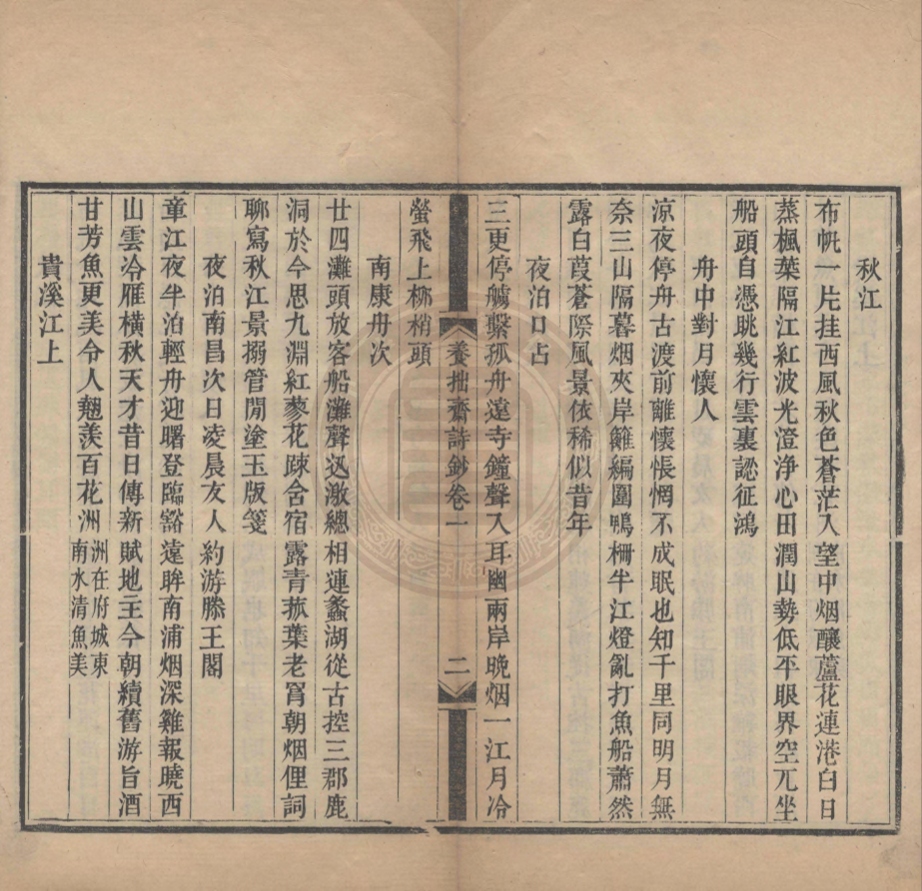 秋江
布帆一片挂西風秋色蒼茫入望中烟釀蘆花連港白日
蒸楓葉隔江紅波光澄浄心田潤山勢低平眼界空兀坐
船頭自憑眺幾行雲裏認征鴻
舟中對月懷人
涼夜停舟古渡前離懷悵惘不成眠也知千里同明月無
奈三山隔暮烟夾岸籬編圍鴨柵半江燈亂打魚船蕭然
露白葭蒼際風景依稀似昔年
夜泊口占
三更停艣繫孤舟遠寺鐘聲入耳幽兩岸晚烟一江月冷
養拙齋詩鈔卷一
二
螢飛上栁梢頭
南康舟次
廿四灘頭放客船灘聲迅激總相連蠡湖從古控三郡鹿
洞於今思九淵紅蓼花疎舍宿露青菰葉老罥朝烟俚詞
聊寫秋江景搦管閒塗玉版箋
夜泊南昌次日凌晨友人約游滕王閣
章江夜半泊輕舟迎曙登臨豁遠眸南浦烟深雞報曉西
山雲冷雁橫秋天才昔日傳新賦地主今朝續舊游旨酒
甘芳魚更美令人翹羨百花洲洲在府城東
南水清魚美
貴溪江上